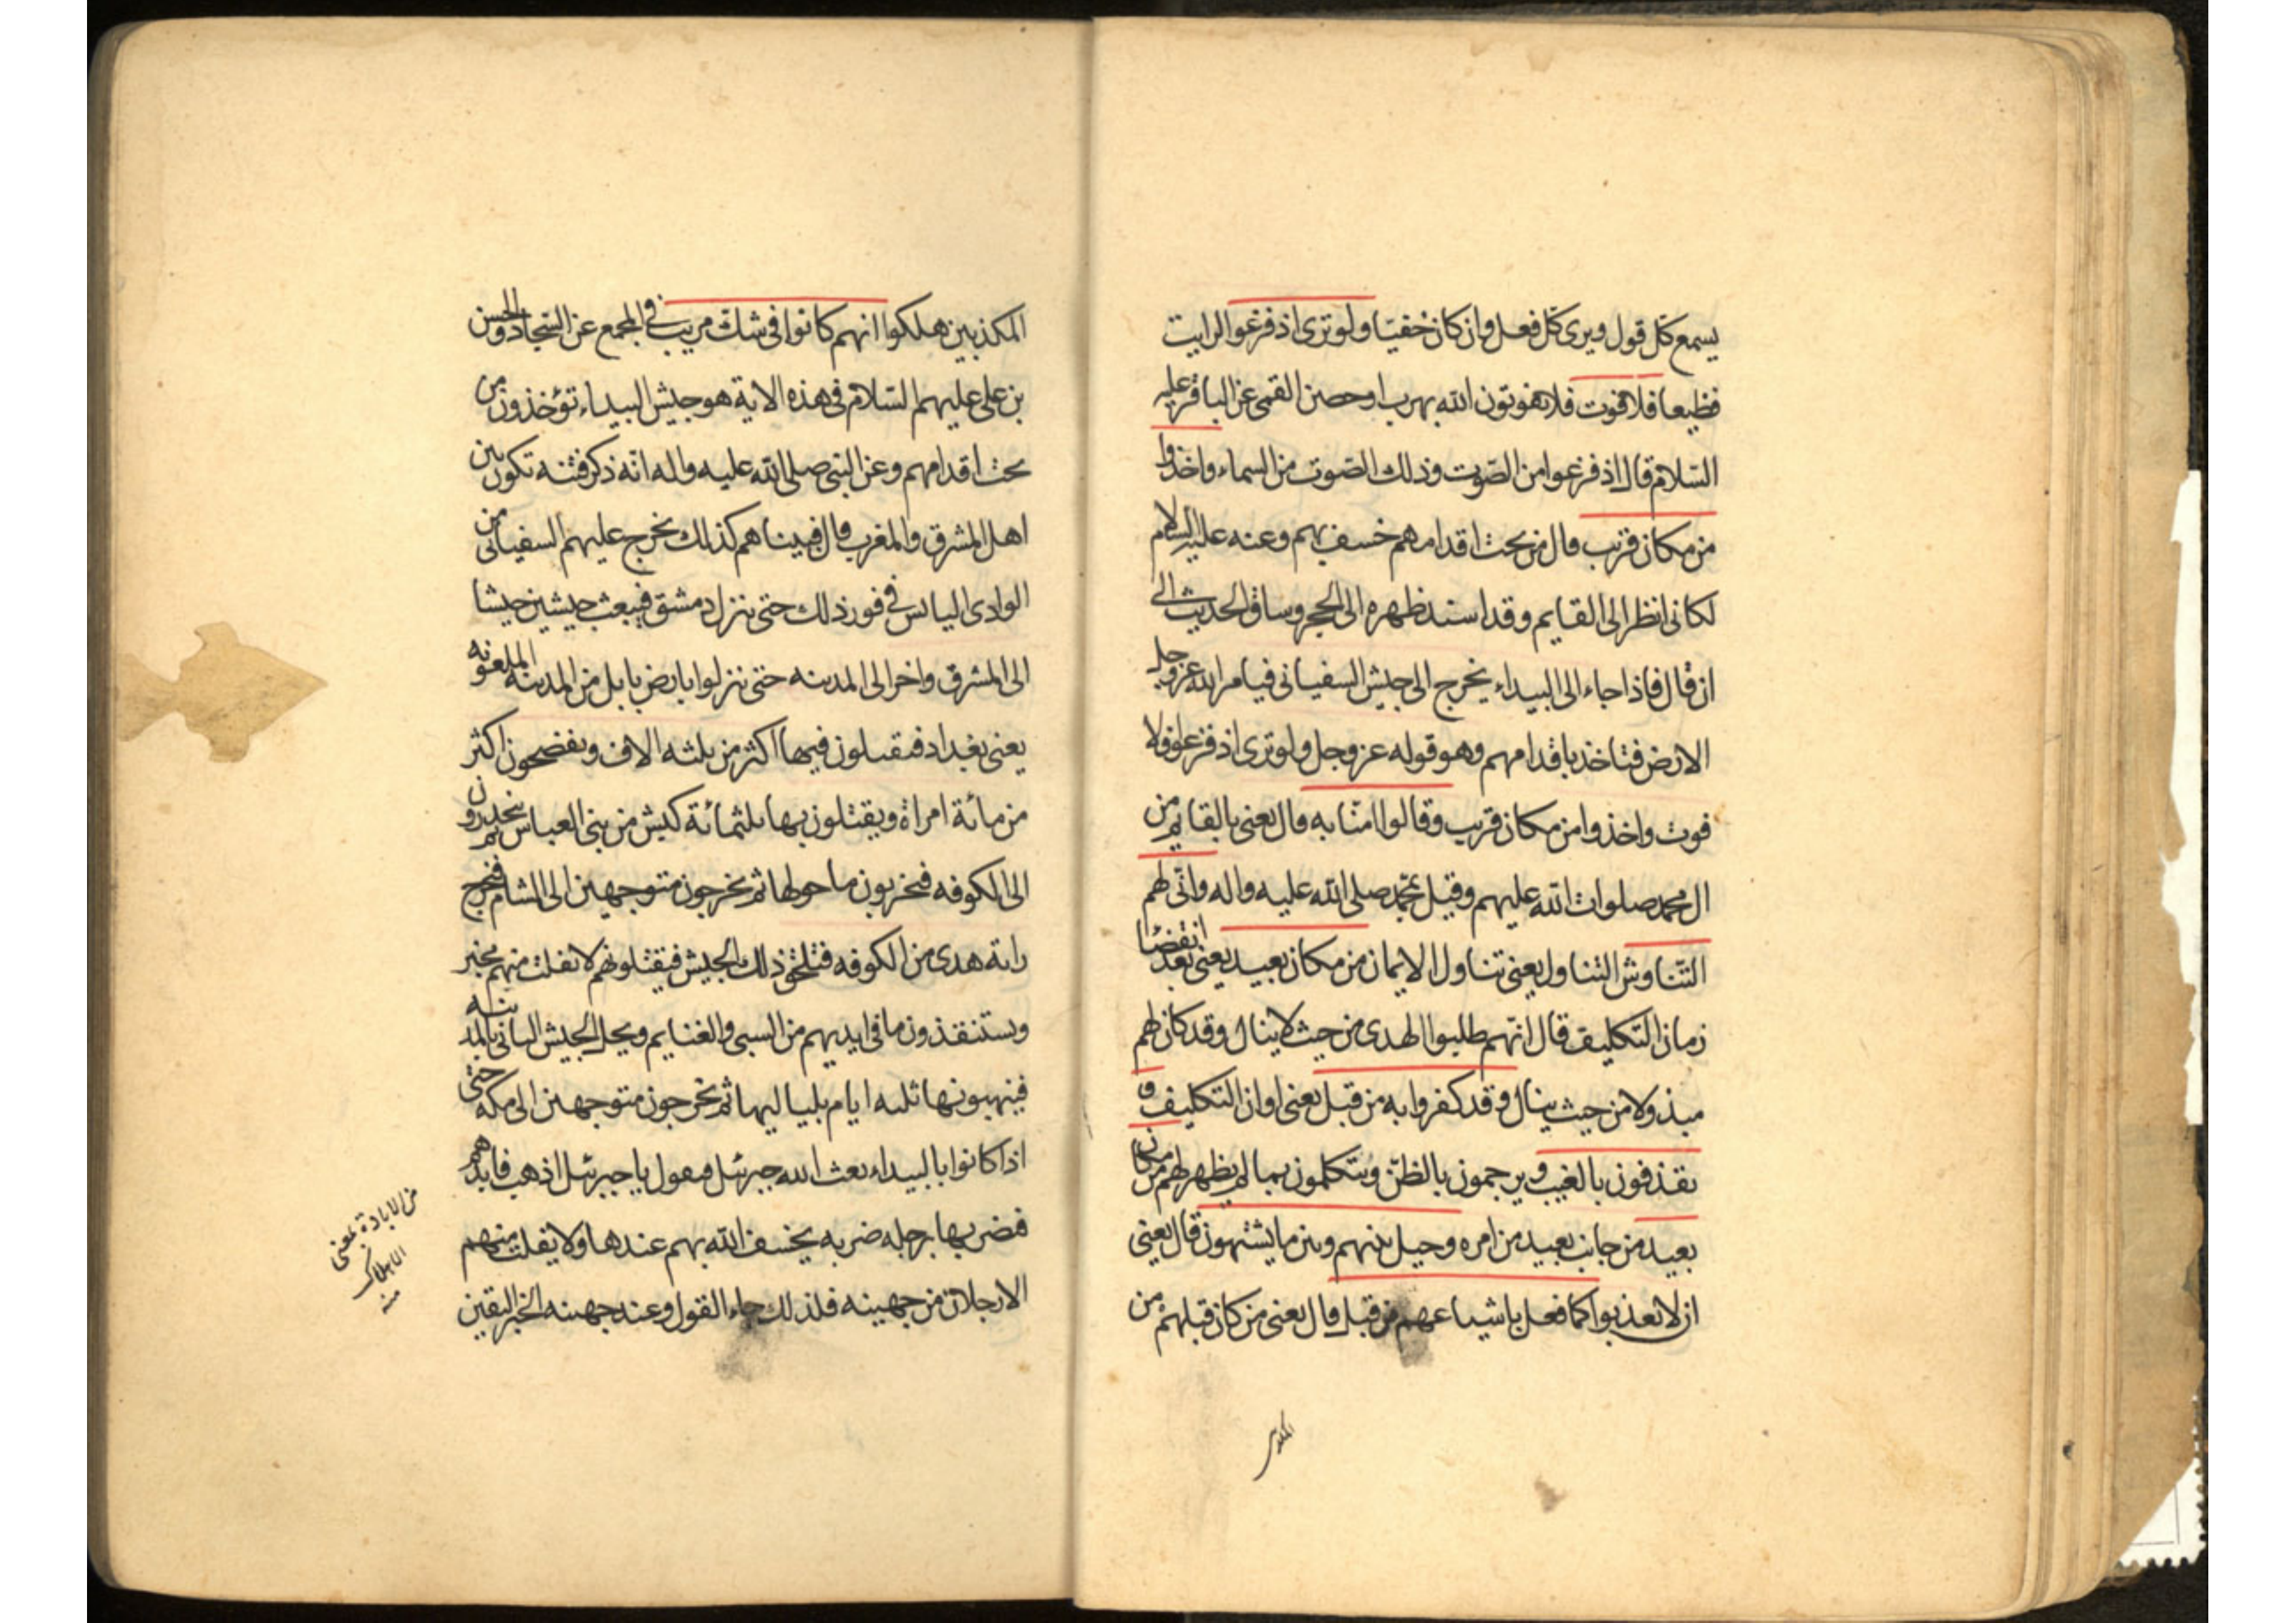 يسمع كل قول ويرى كل فعل وان كان خفيا ولو ترى اذ فزعوا لرايت
فظيعا فلا فوت فلا يفوتون الله بهرب او حصن القمى عن الباقر عليه
السلام قال اذ فزعوا من الصوت وذلك الصوت من السماء واخذوا
من مكان قريب قال من تحت اقدامهم خسف بهم وعنه عليه السلام
لكانى انظر الى القايم وقد اسند ظهره الى الحجر وساق الحديث الى
ان قال فاذا جاء الى البيداء يخرج الى جيش السفيانى فيامر الله عز وجل
الارض فتاخذ باقدامهم وهو قوله عز وجل ولو ترى اذ فزعوا فلا
فوت واخذوا من مكان قريب وقالوا امنا به قال يعنى بالقايم من
ال محمد صلوات الله عليهم وقيل بمحمد صلى الله عليه واله وانى لهم
التناوش التناول يعنى تناول الايمان من مكان بعيد يعنى بعد انقضا
زمان التكليف قال انهم طلبوا الهدى من حيث لا ينال وقد كان لهم
مبذولا من حيث ينال وقد كفروا به من قبل يعنى اوان التكليف و
يقذفون بالغيب ويرجمون بالظن ويتكلمون بما لم يظهر لهم من مكان
بعيد من جانب بعيد من امره وحيل بينهم وبين ما يشتهون قال يعنى
ان لا يعذبوا كما فعل باشياعهم من قبل قال يعنى من كان قبلهم من
المكذبين
المكذبين هلكوا انهم كانوا فى شك مريب فى المجمع عن السجاد والحسن
بن على عليهم السلام فى هذه الاية هو جيش البيداء تؤخذون من
تحت اقدامهم وعن النبى صلى الله عليه واله انه ذكر فتنه تكون بين
اهل المشرق والمغرب قال فبينا هم كذلك يخرج عليهم السفيانى من
الوادى اليابس فى فور ذلك حتى ينزل دمشق فيبعث جيشين جيشا
الى المشرق واخر الى المدينه حتى ينزلوا بارض بابل من المدينه الملعونه
يعنى بغداد فيقتلون فيها اكثر من ثلثه الاف ويفضحون اكثر
من مائة امراة ويقتلون بها ثلثمائة كبش من بنى العباس ثم ينحدرون
الى الكوفه فيخربون ما حولها ثم يخرجون متوجهين الى الشام فيخرج
راية هدى من الكوفه فتلحق ذلك الجيش فيقتلونهم لا يفلت منهم مخبر
ويستنقذون ما فى ايديهم من السبى والغنايم ويحل الجيش الثانى بالمدينه
فينهبونها ثلثه ايام بلياليها ثم يخرجون متوجهين الى مكه حتى
اذا كانوا بالبيداء بعث الله جبرئل فيقول يا جبرئل اذهب فابدهم
فيضربها برجله ضربه يخسف الله بهم عندها ولا يفلت منهم
الا رجلان من جهينه فلذلك جاء القول وعند جهينه الخبر اليقين
من الابادة بمعنى
الاهلاك
منه